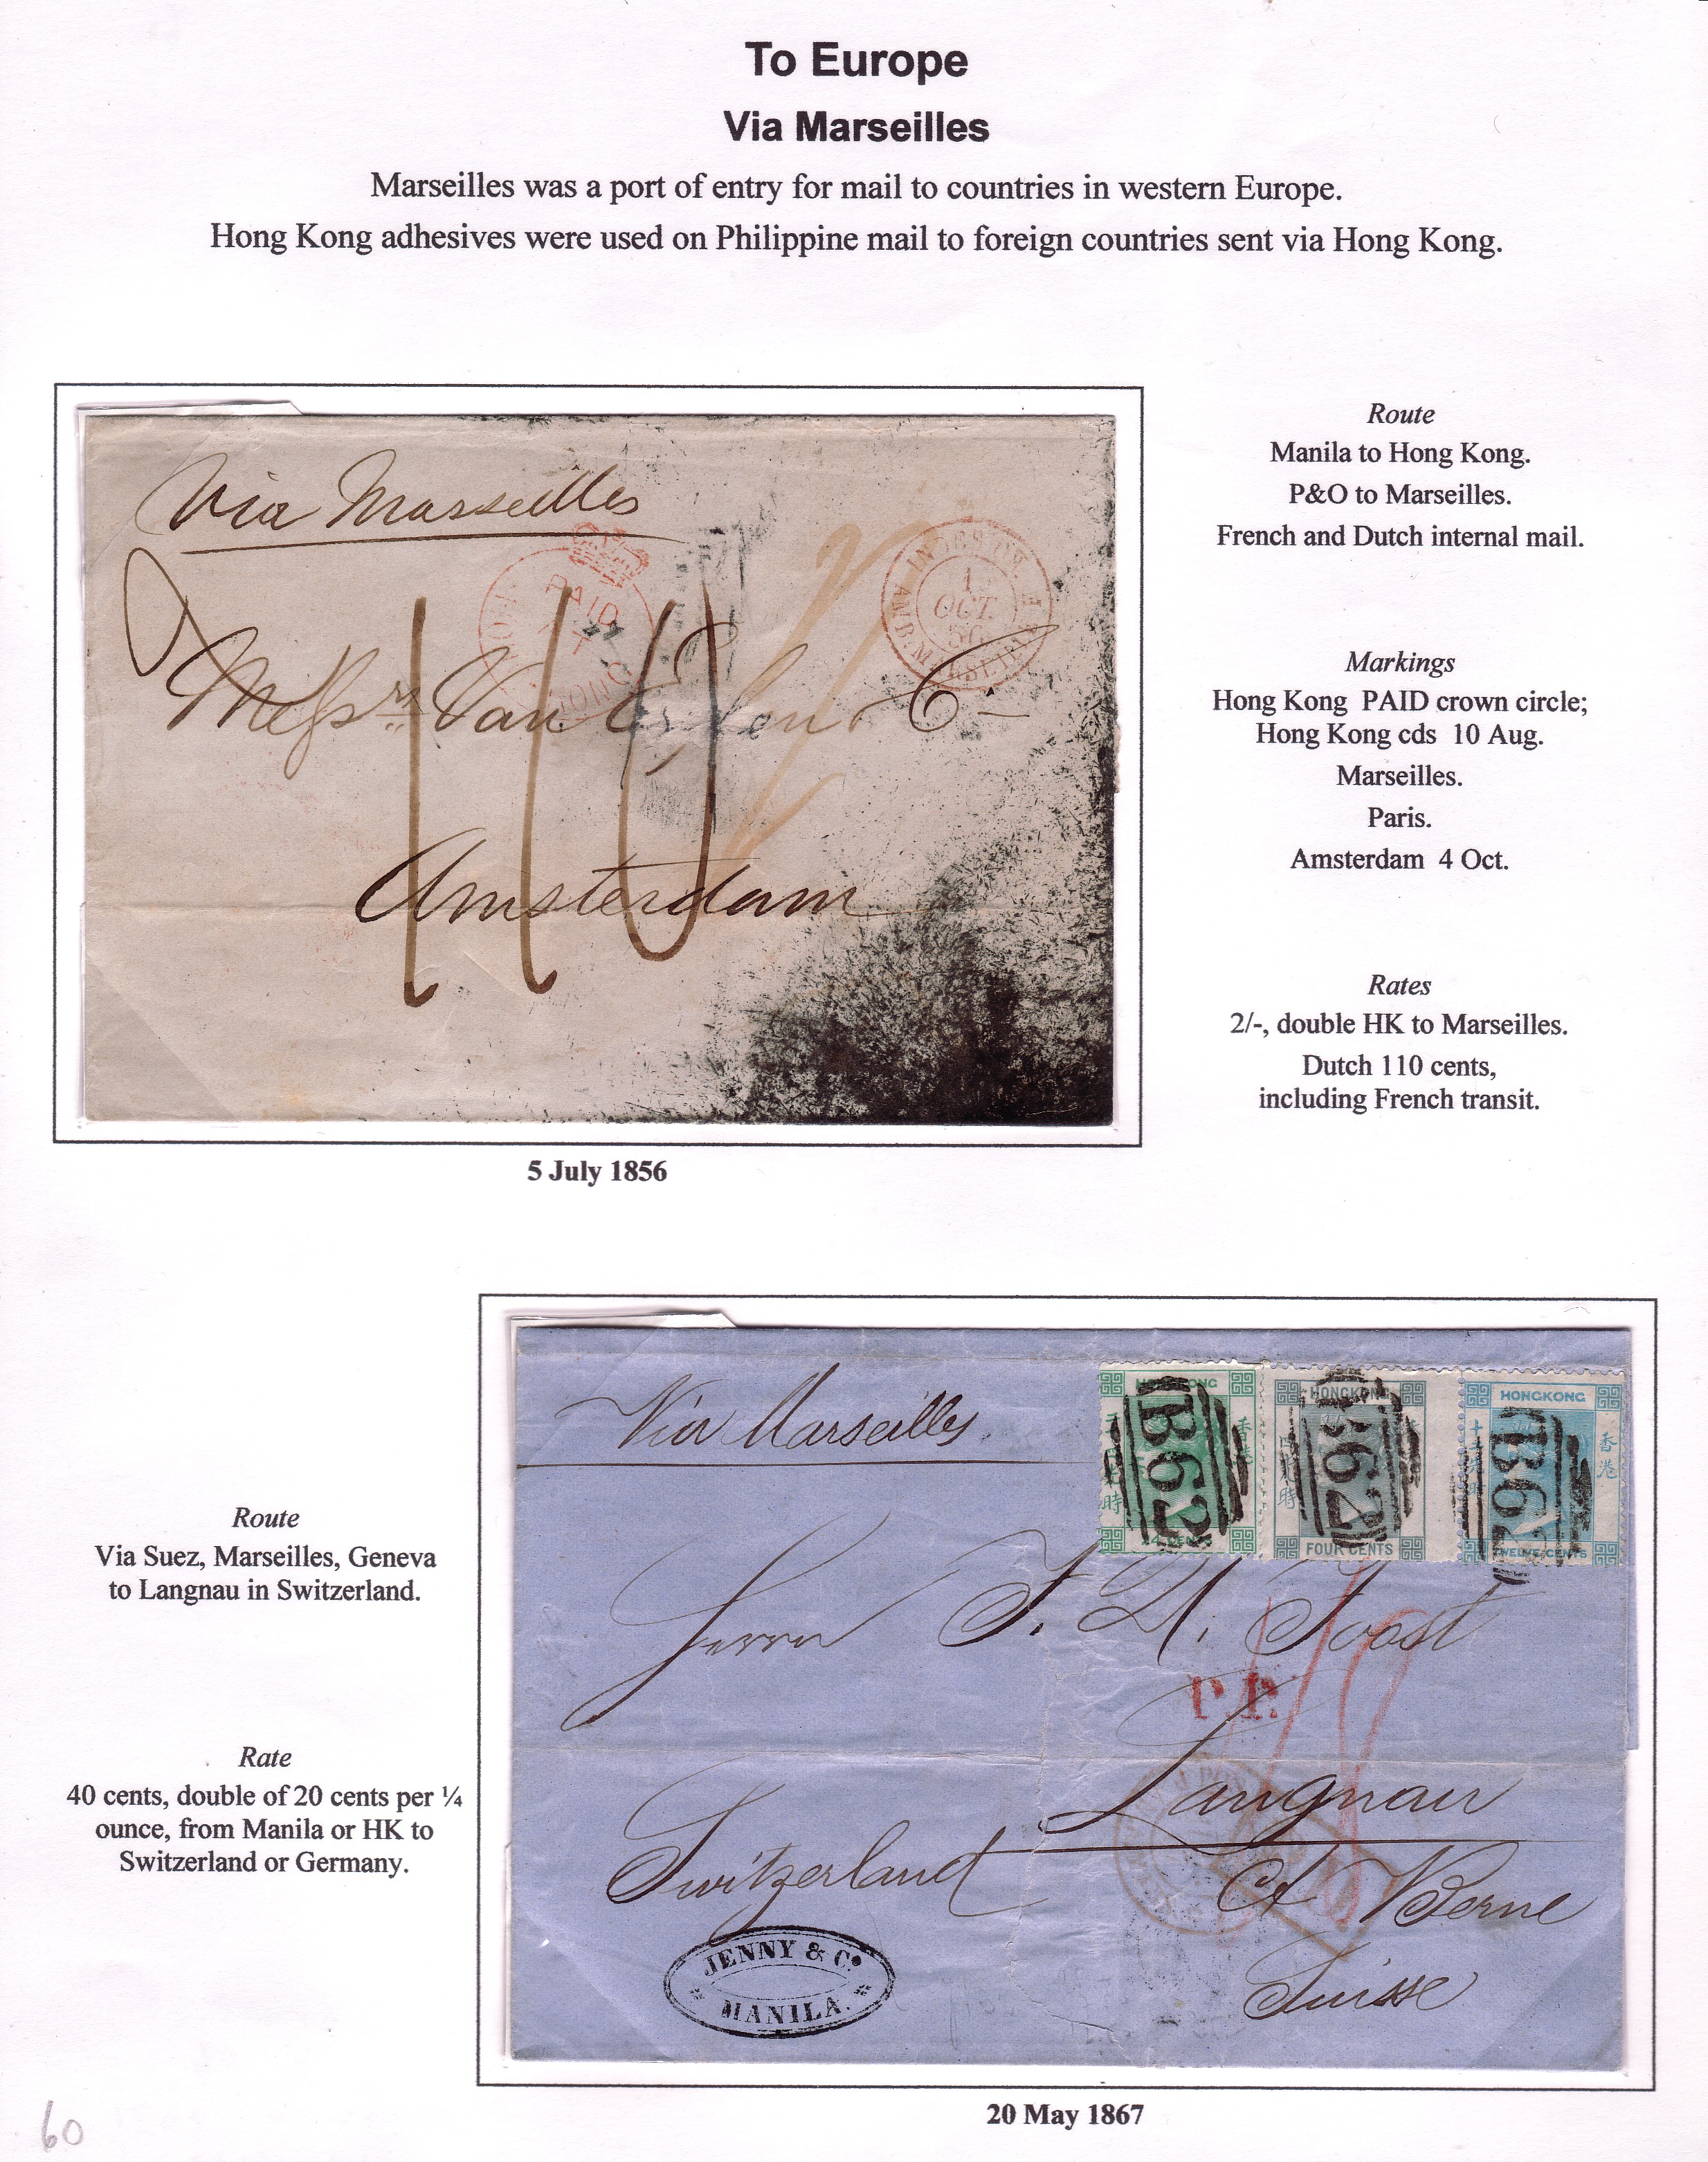 To Europe
Via Marseilles
Marseilles was a port of entry for mail to countries in western Europe.
Hong Kong adhesives were used on Philippine mail to foreign countries sent via Hong Kong.
Via Marseilles
PAID
AT
1
OCT.
56
MARSEILLE
Messrs Van & Co
110
Amsterdam
5 July 1856
Route
Manila to Hong Kong.
P&O to Marseilles.
French and Dutch internal mail.
Markings
Hong Kong PAID crown circle;
Hong Kong cds 10 Aug.
Marseilles.
Paris.
Amsterdam 4 Oct.
Rates
2/-, double HK to Marseilles.
Dutch 110 cents,
including French transit.
Route
Via Suez, Marseilles, Geneva
to Langnau in Switzerland.
Rate
40 cents, double of 20 cents per ¼
ounce, from Manila or HK to
Switzerland or Germany.
Via Marseilles
HONGKONG
B62
香港
HONGKONG
B62
FOUR CENTS
HONGKONG
B62
香港
TWELVE CENTS
Herrn J. U. Joost
P.P.
Langnau
Switzerland
Ct Berne
Suisse
JENNY & Co.
MANILA.
20 May 1867
60